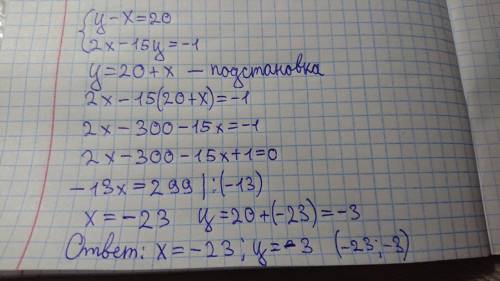 { y-x=20
2x-15y=-1
y=20+x — подстановка
2x-15(20+x)=-1
2x-300-15x=-1
2x-300-15x+1=0
-13x=299 |:(-13)
x=-23 y=20+(-23)=-3
Ответ: x=-23; y=-3 (-23;-3)